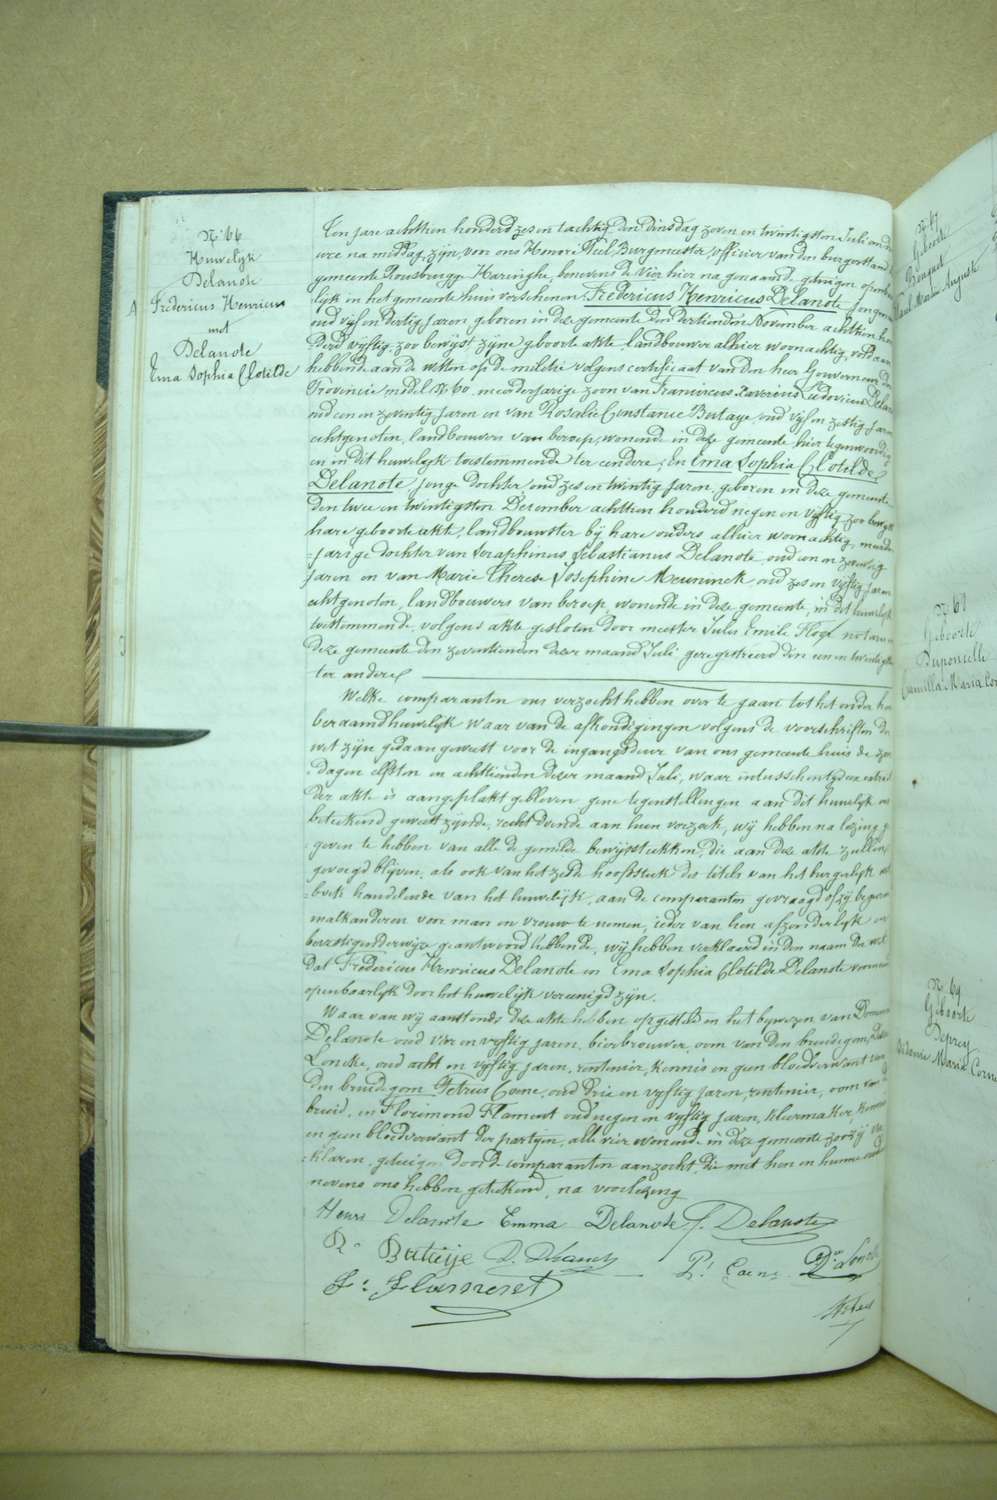 N° 66
Huwelijk
Delanote
Fredericus Henricus
met
Delanote
Ema Sophia Clotilde
Ten jare achttien honderd zes en tachtig den dinsdag zeven en twintigsten Juli om
ure na middag, zijn, voor ons Honoré Burgmeester, officier van den burgerstand
gemeente Rousbrugge Haringhe, benevens de vier hier na genaamde getuigen openbaer
lijk in het gemeente huis verschenen Fredericus Henricus Delanote jongman
oud vijf en dertig jaren geboren in deze gemeente den dertienden November achttien hon
derd vijftig, zoo bewijst zijne geboorte akte landbouwer alhier woonachtig, voldaan
hebbende aan de wetten op de militie volgens certificaat van den heer Gouverneur der
Provincie model N° 60. meerderjarige zoon van Franciscus Xaverius Ludovicus Delanote
oud een en zeventig jaren en van Rosalie Constance Butaye, oud vijf en zestig jaren
echtgenoten, landbouwers van beroep, wonende in deze gemeente hier tegenwoordig
en in dit huwelijk toestemmende ter eendere; En Ema Sophia Clotilde
Delanote jonge dochter oud zes en twintig jaren, geboren in deze gemeente
den twee en twintigsten December achttien honderd negen en vijftig zoo bewijst
hare geboorte akt, landbouwster bij hare ouders alhier woonachtig, meerder
-jarige dochter van Seraphinus Sebastianus Delanote oud een en zeventig
jaren en van Marie Therese Josephine Meuninck oud zes en vijftig jaren
echtgenoten, landbouwers van beroep, wonende in deze gemeente, in dit huwelijk
toestemmende volgens akte gesloten door meester Jules Emile notaris
deze gemeente den zeventienden dezer maand Juli geregistreerd den een en twintigsten
ter andere
Welke comparanten ons verzocht hebben over te gaan tot het onder hen
beraamd huwelijk waar van de afkondigingen volgens de voorschriften der
wet zijn gedaan geweest voor de ingangsdeur van ons gemeente huis de zon
dagen elfsten en achttienden dezer maand Juli, waar intusschentijd een uittreksel
der akte is aangeplakt gebleven geene tegenstellingen aan dit huwelijk ons
beteekend geweest zijnde, recht doende aan hun verzoek, wij hebben na lezing ge
geven te hebben van alle de gemelde bewijsstukken, die aan deze akte zullen
gevoegd blijven, als ook van het zesde hoofdstuk des titels van het burgerlijk wet
-boek handelende van het huwelijk, aan de comparanten gevraagd of zij begeeren
malkanderen voor man en vrouw te nemen, ieder van hen afzonderlijk en
bevestigenderwijze geantwoord hebbende, wij hebben verklaerd in den naam der wet
dat Fredericus Henricus Delanote en Ema Sophia Clotilde Delanote voornoemd
openbaarlijk door het huwelijk vereenigd zijn.
Waar van wij aanstonds deze akte hebben opgesteld in het bijwezen van
Delanote oud vier en vijftig jaren, bierbrouwer, oom van den bruidegom,
Loncke, oud acht en vijftig jaren, rentenier, kennis en geen bloedverwant van
den bruidegom Petrus Coene, oud drie en vijftig jaren, rentenier, oom van de
bruid, en Florimond Flament oud negen en vijftig jaren, kleermaker, kennis
en geen bloedverwant der partijen, alle vier wonende in deze gemeente zoo zij ver
-klaren, getuigen door de comparanten aanzocht, die met hen en hunne ouders
nevens ons hebben geteekend, na voorlezing
Henri Delanote Emma Delanote Delanote
R. Butaije D. Delanote P. Coene
F. Flament
N° 67
Geboorte
Bouquet
N° 68
Geboorte
Duponselle
Camilla Maria Cor
N° 69
Geboorte
Deprey
Maria Corne